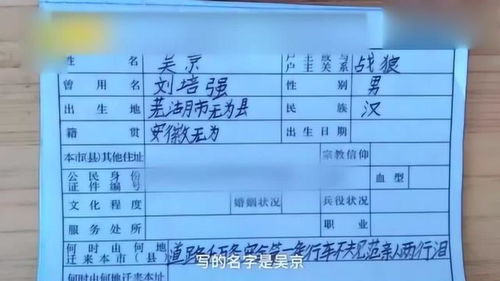 姓 名 吴京 户主或与户主关系 战狼
曾用名 刘培强 性别 男
出生地 芜湖市无为县 民族 汉
籍贯 安徽无为 出生日期
本市(县)其他住址 宗教信仰
公民身份证件编号 血型
文化程度 婚姻状况 兵役状况
服务处所 职业
何时由何地迁来本市(县) 道路千万条安全第一条行车不规范亲人两行泪
何时由何地迁来本址
写的名字是吴京